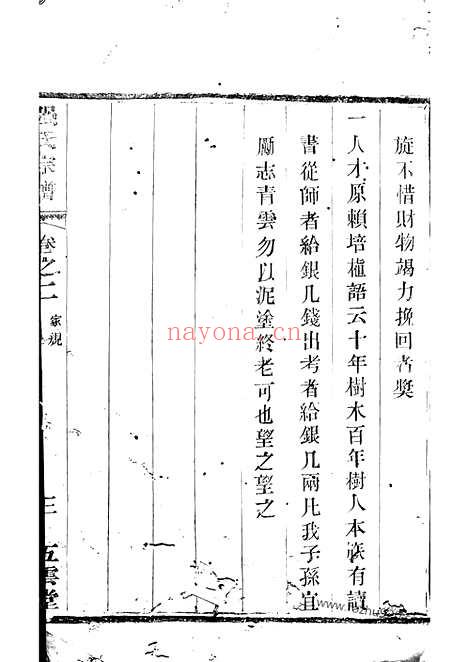 旋不惜財物竭力挽回者獎
一人才原賴培植語云十年樹木百年樹人本族有讀
書從師者給銀几錢出考者給銀几兩凡我子孫宜
勵志青雲勿以泥塗終老可也望之望之
氏宗譜
卷之二
家規
三
五雲堂
nayona.cn